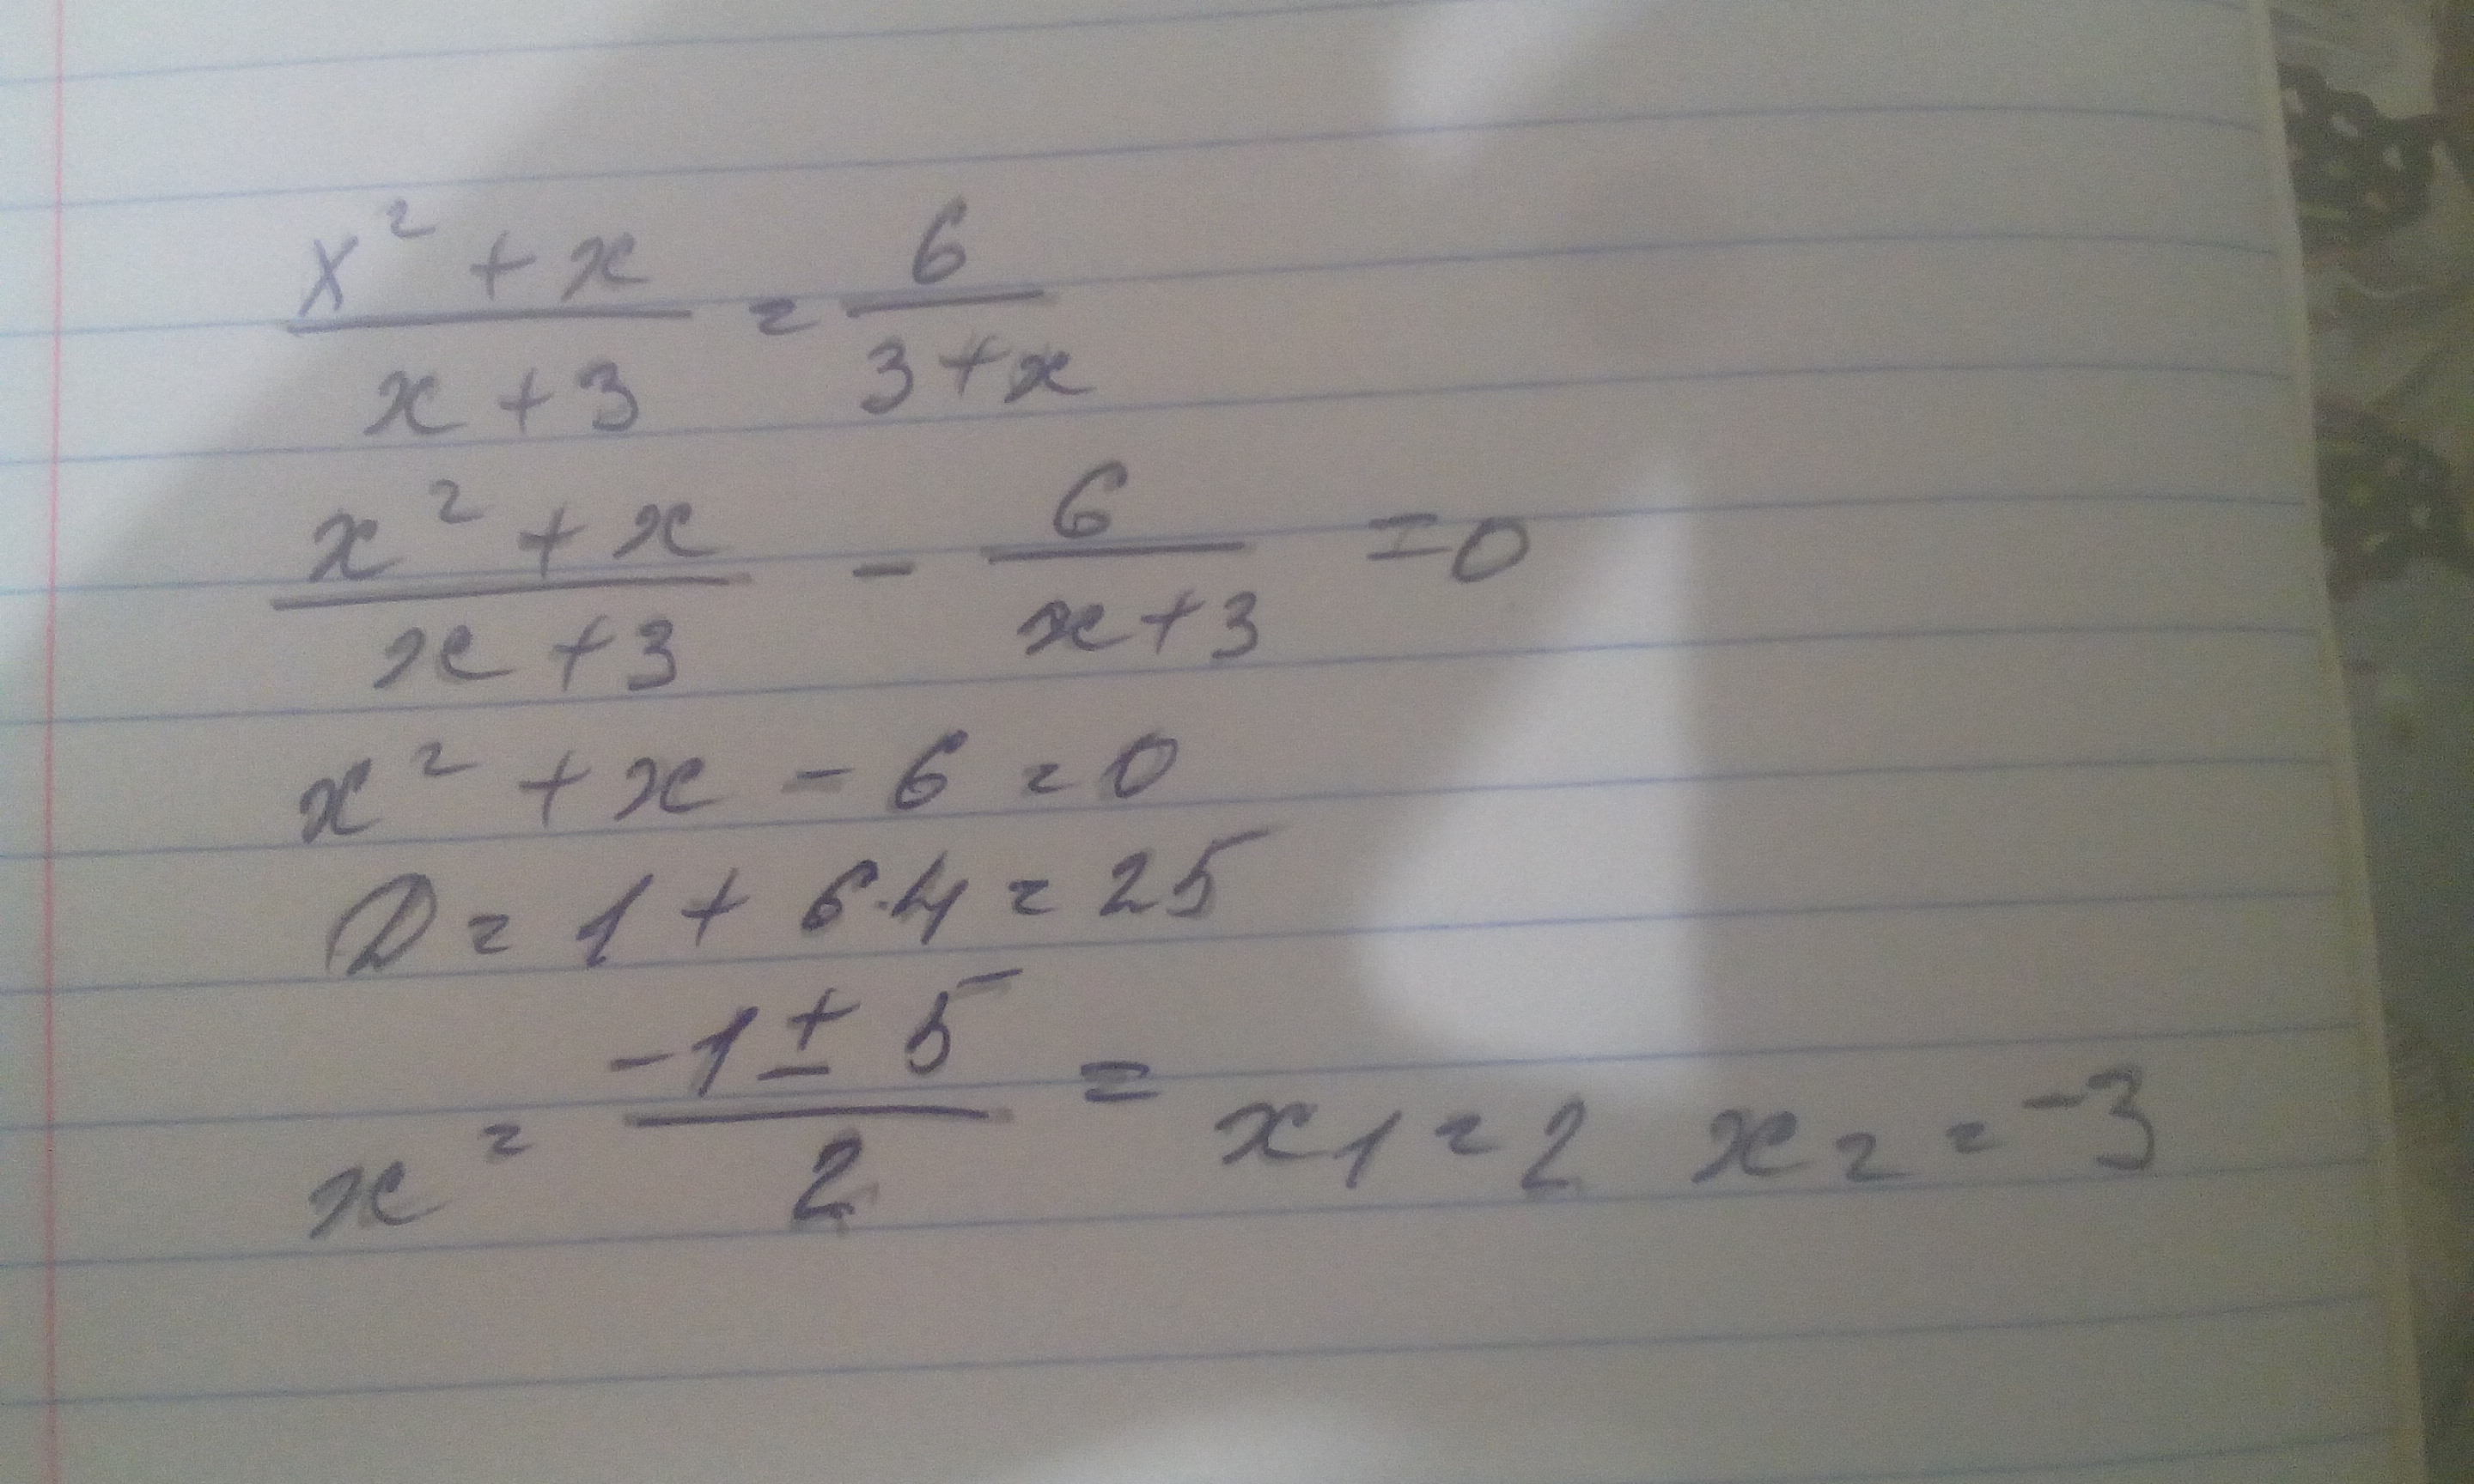 (x² + x)/(x + 3) = 6/(3 + x)
(x² + x)/(x + 3) - 6/(x + 3) = 0
x² + x - 6 = 0
D = 1 + 6·4 = 25
x = (-1 ± 5)/2 = x₁ = 2 x₂ = -3